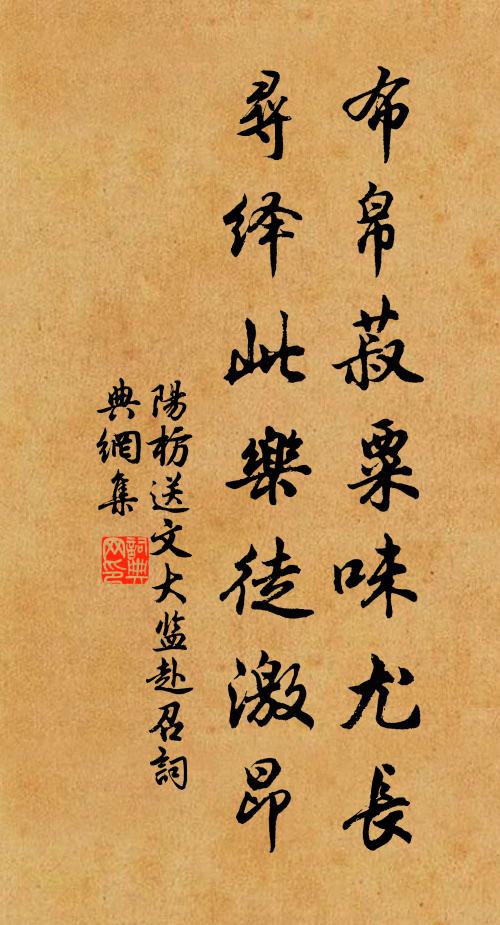 布帛菽粟味尤長
尋绎此樂徒激昂
陽枋送文大监赴召詞
典網集
詞典
网印